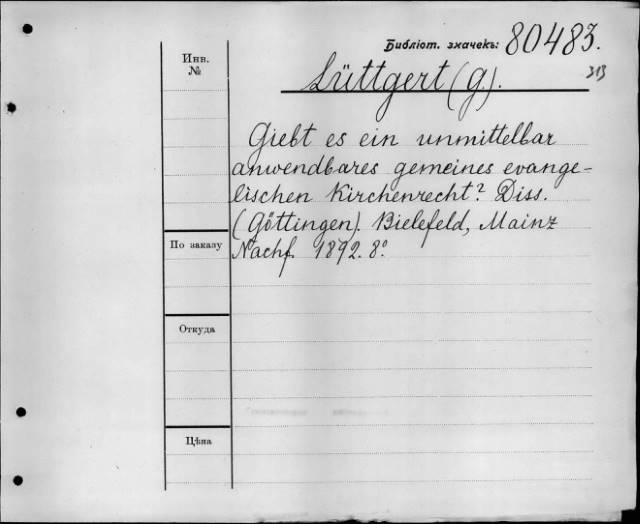 Библіот. значекъ: 80483.
313
Инв.
№
Lüttgert (G.).
Giebt es ein unmittelbar
anwendbares gemeines evange-
lischen Kirchenrecht? Diss.
(Göttingen). Bielefeld, Mainz
Nachf. 1892. 8º.
По заказу
Откуда
Цѣна